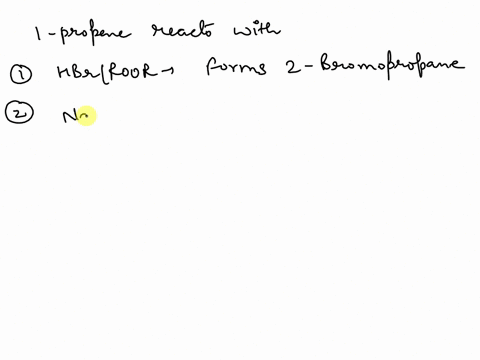 1-propene reacts with
① HBr/ROOR → forms 2-Bromopropane
② Na